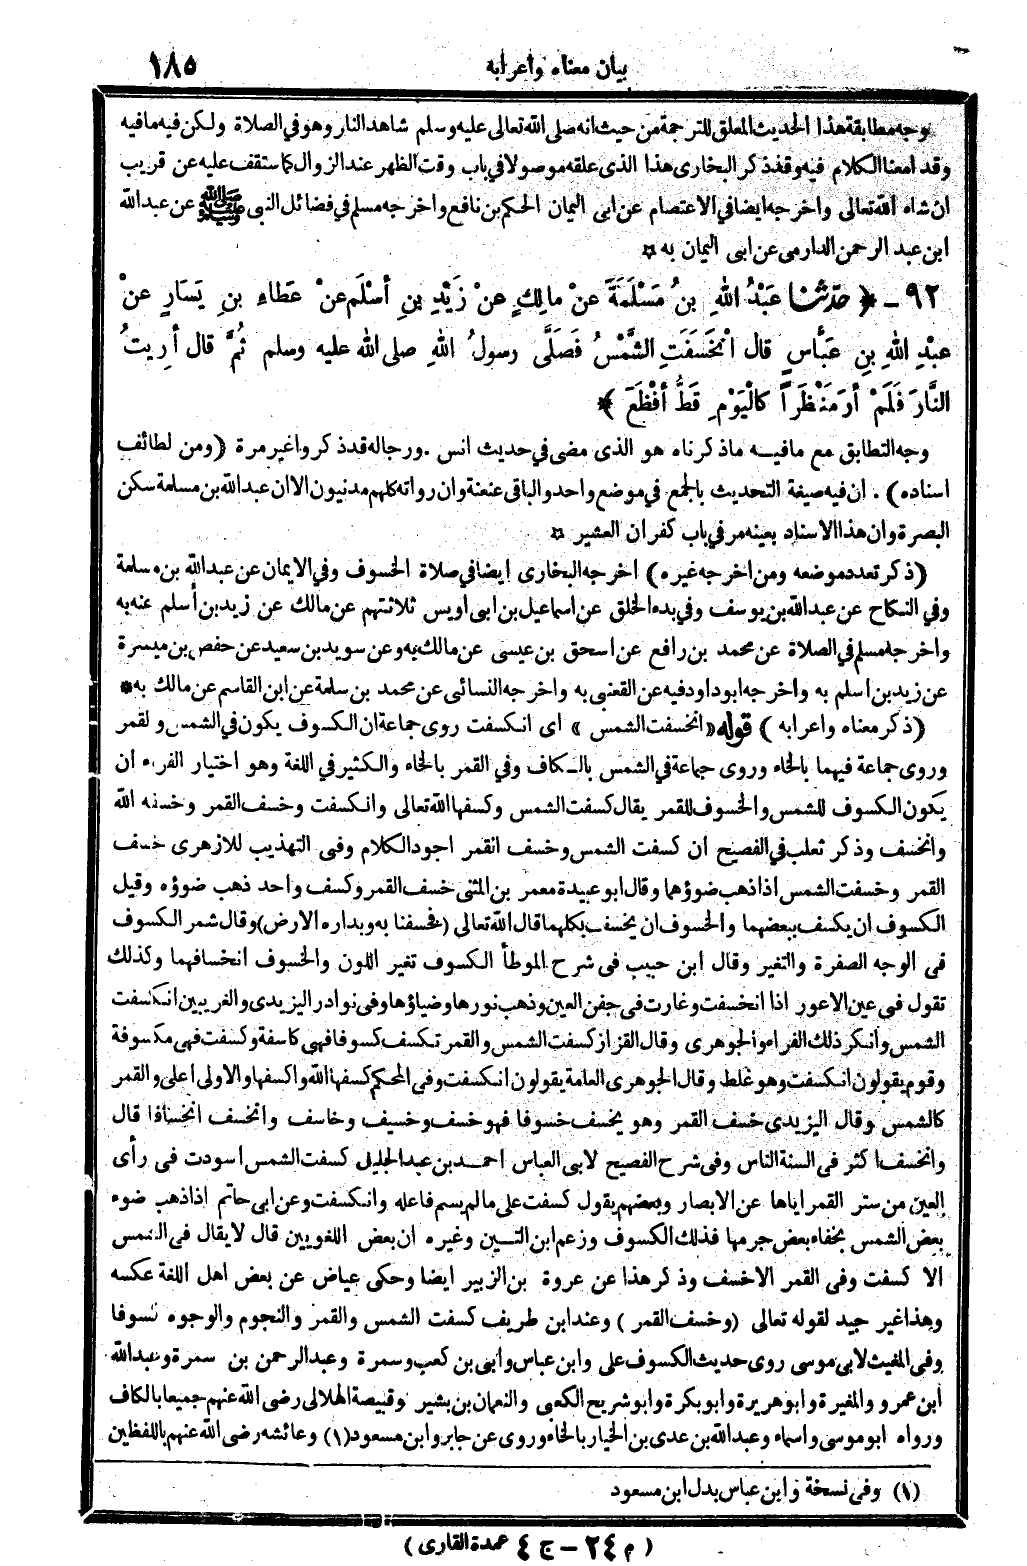 بيان معناه واعرابه ١٨٥
وجه مطابقة هذا الحديث المعلق للترجمة من حيث انه صلى الله تعالى عليه وسلم شاهد النار وهو في الصلاة ولكن فيه مافيه
وقد امعنا الكلام فيه وقد ذكر البخارى هذا الذى علقه موصولا في باب وقت الظهر عند الزوال كما ستقف عليه عن قريب
ان شاء الله تعالى واخرجه ايضا في الاعتصام عن ابى اليمان الحكم بن نافع واخرجه مسلم في فضائل النبى ﷺ عن عبد الله
ابن عبد الرحمن الدارمى عن ابى اليمان به ¤
٩٢ - ﴿ حدّثنا عَبْدُ اللهِ بنُ مَسْلَمَةَ عنْ مالِكٍ عنْ زَيْدِ بنِ أسْلَم عنْ عَطاءِ بنِ يَسَارٍ عنْ
عبْدِ اللهِ بنِ عَبَّاسٍ قال انْخَسَفَتِ الشَّمْسُ فَصَلَّى رسولُ اللهِ صلى الله عليه وسلم ثُمَّ قال أُرِيتُ
النَّارَ فَلَمْ أرَ مَنْظَراً كالْيَوْمِ قَطُّ أفْظَعَ ﴾
وجه التطابق مع مافيه ماذكرناه هو الذى مضى في حديث انس . ورجاله قد ذكروا غير مرة (ومن لطائف
اسناده) . ان فيه صيغة التحديث بالجمع في موضع واحد والباقى عنعنة وان رواته كلهم مدنيون الاان عبد الله بن مسلمة سكن
البصرة وان هذا الاسناد بعينه مر في باب كفران العشير ¤
(ذكر تعدد موضعه ومن اخرجه غيره) اخرجه البخارى ايضا في صلاة الخسوف وفي الايمان عن عبد الله بن مسلمة
وفي النكاح عن عبد الله بن يوسف وفي بدء الخلق عن اسماعيل بن ابى اويس ثلاثتهم عن مالك عن زيد بن أسلم عنه به
واخرجه مسلم في الصلاة عن محمد بن رافع عن اسحق بن عيسى عن مالك به وعن سويد بن سعيد عن حفص بن ميسرة
عن زيد بن اسلم به واخرجه ابو داود فيه عن القعنبى به واخرجه النسائى عن محمد بن سلمة عن ابن القاسم عن مالك به *
(ذكر معناه واعرابه) قوله «انخسفت الشمس» اى انكسفت روى جماعة ان الكسوف يكون في الشمس والقمر
وروى جماعة فيهما بالخاء وروى جماعة في الشمس بالكاف وفي القمر بالخاء والكثير في اللغة وهو اختيار الفراء ان
يكون الكسوف للشمس والخسوف للقمر يقال كسفت الشمس وكسفها الله تعالى وانكسفت وخسف القمر وخسفه الله
وانخسف وذكر ثعلب في الفصيح ان كسفت الشمس وخسف القمر اجود الكلام وفى التهذيب للازهرى خسف
القمر وخسفت الشمس اذا ذهب ضوؤها وقال ابو عبيدة معمر بن المثنى خسف القمر وكسف واحد ذهب ضوؤه وقيل
الكسوف ان يكسف ببعضهما والخسوف ان يخسف بكلهما قال الله تعالى (فخسفنا به وبداره الارض) وقال شمر الكسوف
فى الوجه الصفرة والتغير وقال ابن حبيب فى شرح الموطأ الكسوف تغير اللون والخسوف انخسافهما وكذلك
تقول فى عين الاعور اذا انخسفت وغارت فى جفن العين وذهب نورها وضياؤها وفى نوادر اليزيدى والغريبين انكسفت
الشمس وأنكر ذلك الفراء والجوهرى وقال القزاز كسفت الشمس والقمر تكسف كسوفا فهى كاسفة وكسفت فهى مكسوفة
وقوم يقولون انكسفت وهو غلط وقال الجوهرى العامة يقولون انكسفت وفى المحكم كسفها الله واكسفها والاولى اعلى والقمر
كالشمس وقال اليزيدى خسف القمر وهو يخسف خسوفا فهو خسف وخسيف وخاسف وانخسف انخسافا قال
وانخسف اكثر فى السنة الناس وفى شرح الفصيح لابى العباس احمد بن عبد الجليل كسفت الشمس اسودت فى رأى
العين من ستر القمر اياها عن الابصار وبعضهم يقول كسفت على مالم يسم فاعله وانكسفت وعن ابى حاتم اذا ذهب ضوء
بعض الشمس بخفاء بعض جرمها فذلك الكسوف وزعم ابن التين وغيره ان بعض اللغويين قال لا يقال فى الشمس
الا كسفت وفى القمر الا خسف وذكر هذا عن عروة بن الزبير ايضا وحكى عياض عن بعض اهل اللغة عكسه
وهذا غير جيد لقوله تعالى (وخسف القمر) وعند ابن طريف كسفت الشمس والقمر والنجوم والوجوه كسوفا
وفى المغيث لابى موسى روى حديث الكسوف على وابن عباس وابى بن كعب وسمرة وعبد الرحمن بن سمرة وعبد الله
ابن عمرو والمغيرة وابو هريرة وابو بكرة وابو شريح الكعبى والنعمان بن بشير وقبيصة الهلالى رضى الله عنهم جميعا بالكاف
ورواه ابو موسى واسماء وعبد الله بن عدى بن الخيار بالخاء وروى عن جابر وابن مسعود(١) وعائشه رضى الله عنهم باللفظين
(١) وفى نسخة وابن عباس بدل ابن مسعود
(م ٢٤ - ج ٤ عمدة القارى)